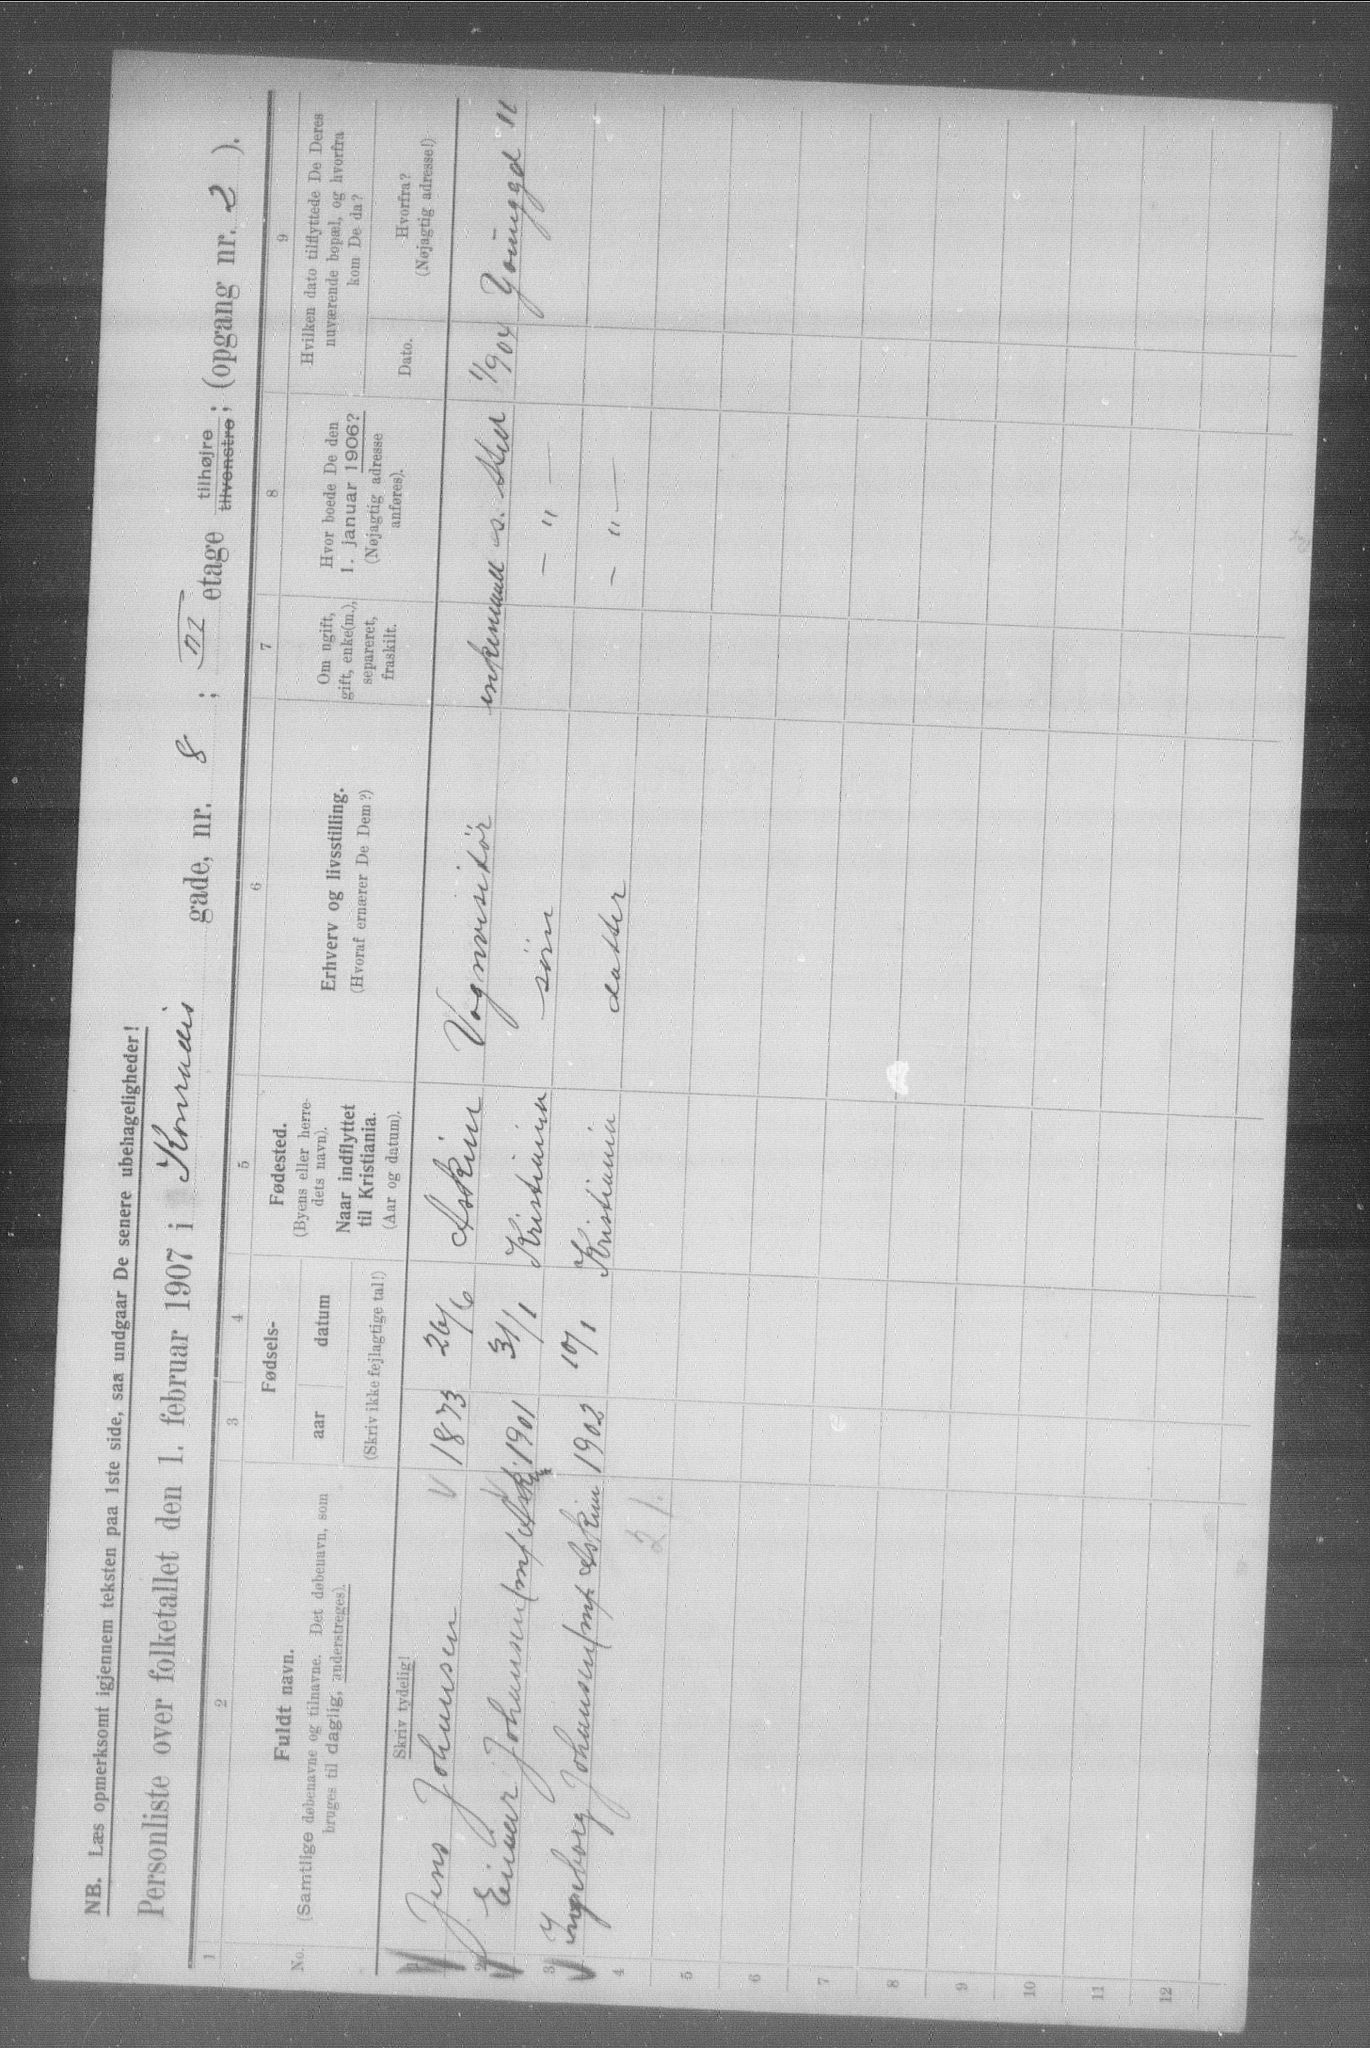 NB. Læs opmerksomt igjennem teksten paa 1ste side, saa undgaar De senere ubehageligheder!
Personliste over folketallet den 1. februar 1907 i Konradis gade, nr. 8 ; III etage tilhøjre tilvenstre; (opgang nr. 2 ).
1 2 3 4 5 6 7 8 9
No.
Fuldt navn.
(Samtlige døbenavne og tilnavne. Det døbenavn, som
bruges til daglig, understreges).
Skriv tydelig!
Fødsels-
aar datum
(Skriv ikke fejlagtige tal!)
Fødested.
(Byens eller herre-
dets navn).
Naar indflyttet
til Kristiania.
(Aar og datum).
Erhverv og livsstilling.
(Hvoraf ernærer De Dem?)
Om ugift,
gift, enke(m.),
separeret,
fraskilt.
Hvor boede De den
1. januar 1906?
(Nøjagtig adresse
anføres).
Hvilken dato tilflyttede De Deres
nuværende bopæl, og hvorfra
kom De da?
Dato.
Hvorfra?
(Nøjagtig adresse!)
1 Jens Johansen 1873 26/6 Askim Vognvisitør enkemand s. sted 1/904 Youngsgd 11
2 Einar Johansen 1901 31/1 Kristiania søn - " -
3 Ingeborg Johansen Askim 1902 10/1 Kristiania datter - " -
4 2 1.
5
6
7
8
9
10
11
12